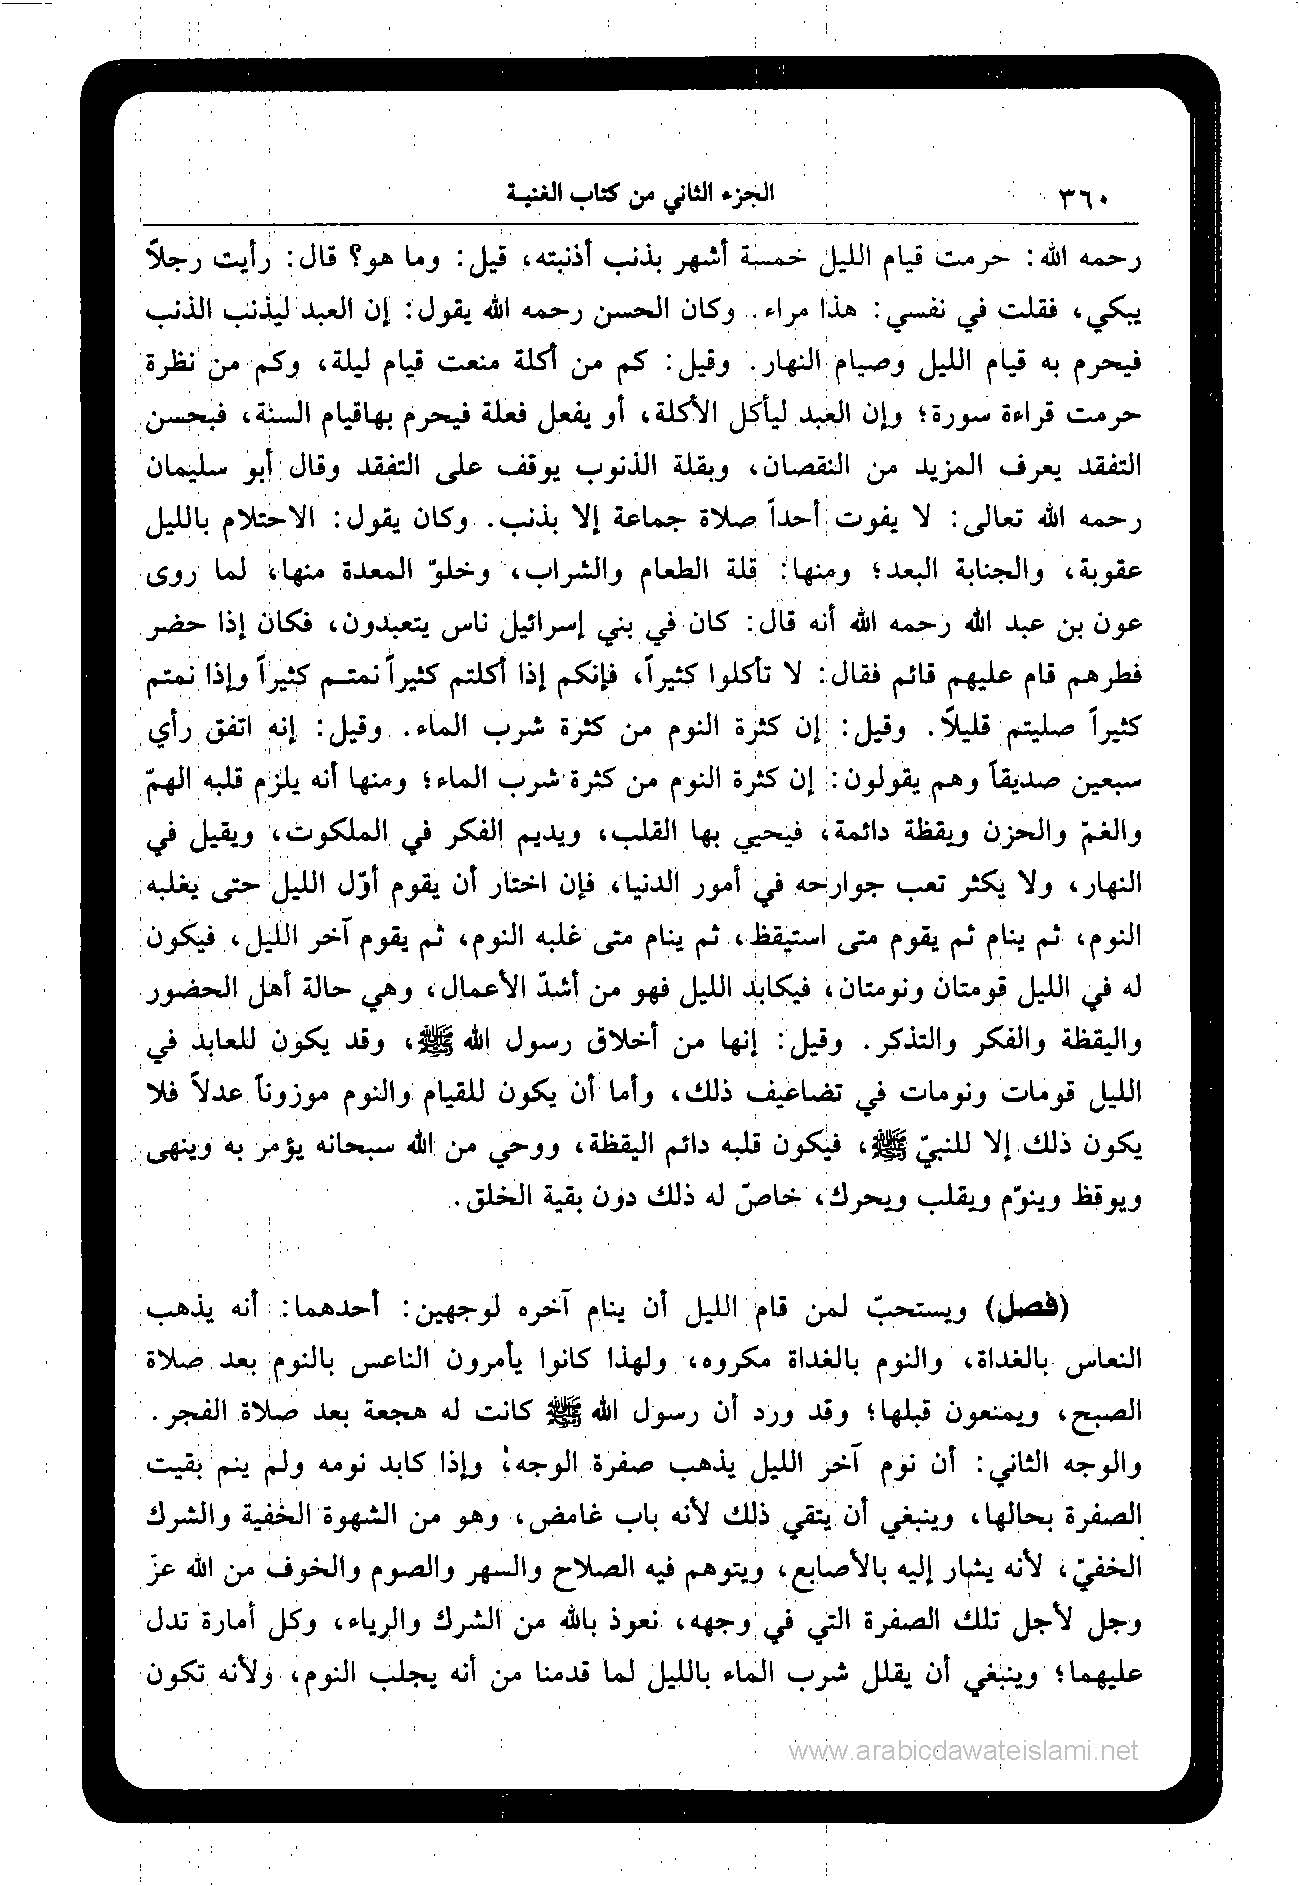 ٣٦٠ الجزء الثاني من كتاب الغنية
رحمه الله: حرمت قيام الليل خمسة أشهر بذنب أذنبته، قيل: وما هو؟ قال: رأيت رجلاً
يبكي، فقلت في نفسي: هذا مراء. وكان الحسن رحمه الله يقول: إن العبد ليذنب الذنب
فيحرم به قيام الليل وصيام النهار. وقيل: كم من أكلة منعت قيام ليلة، وكم من نظرة
حرمت قراءة سورة؛ وإن العبد ليأكل الأكلة، أو يفعل فعلة فيحرم بهاقيام السنة، فبحسن
التفقد يعرف المزيد من النقصان، وبقلة الذنوب يوقف على التفقد وقال أبو سليمان
رحمه الله تعالى: لا يفوت أحداً صلاة جماعة إلا بذنب. وكان يقول: الاحتلام بالليل
عقوبة، والجنابة البعد؛ ومنها: قلة الطعام والشراب، وخلوّ المعدة منها، لما روى
عون بن عبد الله رحمه الله أنه قال: كان في بني إسرائيل ناس يتعبدون، فكان إذا حضر
فطرهم قام عليهم قائم فقال: لا تأكلوا كثيراً، فإنكم إذا أكلتم كثيراً نمتم كثيراً وإذا نمتم
كثيراً صليتم قليلاً. وقيل: إن كثرة النوم من كثرة شرب الماء. وقيل: إنه اتفق رأي
سبعين صديقاً وهم يقولون: إن كثرة النوم من كثرة شرب الماء؛ ومنها أنه يلزم قلبه الهمّ
والغمّ والحزن ويقظة دائمة، فيحيي بها القلب، ويديم الفكر في الملكوت، ويقيل في
النهار، ولا يكثر تعب جوارحه في أمور الدنيا، فإن اختار أن يقوم أوّل الليل حتى يغلبه
النوم، ثم ينام ثم يقوم متى استيقظ، ثم ينام متى غلبه النوم، ثم يقوم آخر الليل، فيكون
له في الليل قومتان ونومتان، فيكابد الليل فهو من أشدّ الأعمال، وهي حالة أهل الحضور
واليقظة والفكر والتذكر. وقيل: إنها من أخلاق رسول الله ﷺ، وقد يكون للعابد في
الليل قومات ونومات في تضاعيف ذلك، وأما أن يكون للقيام والنوم موزوناً عدلاً فلا
يكون ذلك إلا للنبيّ ﷺ، فيكون قلبه دائم اليقظة، ووحي من الله سبحانه يؤمر به وينهى
ويوقظ وينوّم ويقلب ويحرك، خاصّ له ذلك دون بقية الخلق.
(فصل) ويستحبّ لمن قام الليل أن ينام آخره لوجهين: أحدهما: أنه يذهب
النعاس بالغداة، والنوم بالغداة مكروه، ولهذا كانوا يأمرون الناعس بالنوم بعد صلاة
الصبح، ويمنعون قبلها؛ وقد ورد أن رسول الله ﷺ كانت له هجعة بعد صلاة الفجر.
والوجه الثاني: أن نوم آخر الليل يذهب صفرة الوجه، وإذا كابد نومه ولم ينم بقيت
الصفرة بحالها، وينبغي أن يتقي ذلك لأنه باب غامض، وهو من الشهوة الخفية والشرك
الخفيّ، لأنه يشار إليه بالأصابع، ويتوهم فيه الصلاح والسهر والصوم والخوف من الله عزّ
وجل لأجل تلك الصفرة التي في وجهه، نعوذ بالله من الشرك والرياء، وكل أمارة تدل
عليهما؛ وينبغي أن يقلل شرب الماء بالليل لما قدمنا من أنه يجلب النوم، ولأنه تكون
www.arabicdawateislami.net